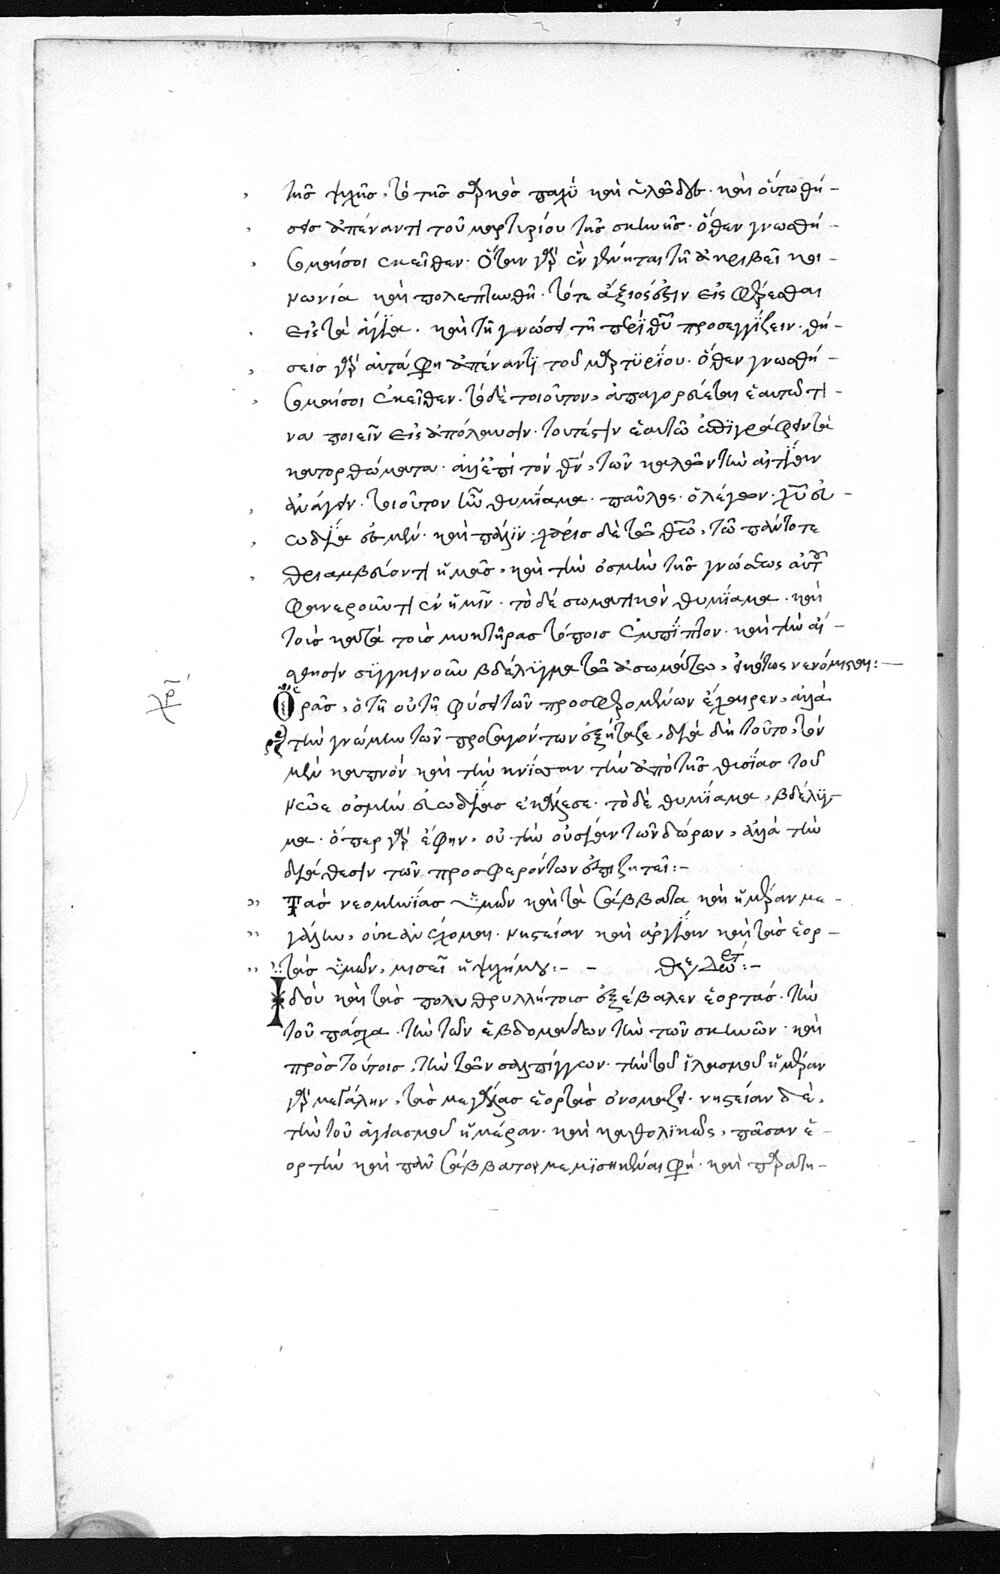 τῆς ψυχῆς, τὸ τῆς σαρκὸς παχὺ καὶ ὑλῶδες. καὶ οὕτω θή-
σεις ἀπέναντι τοῦ μαρτυρίου τῆς σκηνῆς. ὅθεν γνωσθή-
σομαί σοι ἐκεῖθεν. ὅταν γὰρ ἐν γένηται τῇ ἀκριβεῖ κοι-
νωνία καὶ πολεπτωθῆ. τότε ἄξιός ἐστιν εἰς φέρεσθαι
εἰς τὰ ἅγια. καὶ τῇ γνώσει τῇ περὶ θυ προσεγγίζειν. θή-
σεις γὰρ αὐτά φη ἀπέναντι τοῦ μαρτυρίου. ὅθεν γνωσθή-
σομαί σοι ἐκεῖθεν. τὸ δὲ τοιοῦτον, ἀπαγορεύεται ἑαυτῶ τι
να ποιεῖν εἰς ἀπόλαυσιν. τουτέστιν ἑαυτῶ ἐπιγράφειν τὰ
κατορθώματα. ἀλλ' ἐπὶ τὸν θν, τῶν καλῶν τὴν αἰτίαν
ἀνάγειν. τοιοῦτον ἦν θυμίαμα. παῦλος. ὁ λέγων. χυ εὐ-
ωδία ἐσμέν. καὶ πάλιν. χάρις δὲ τῶ θω, τῶ πάντοτε
θριαμβεύοντι ἡμᾶς, καὶ τὴν ὀσμὴν τῆς γνώσεως αὐτοῦ
φανεροῦντι ἐν ἡμῖν. τὸ δὲ σωματικὸν θυμίαμα. καὶ
τοῖς κατὰ τοὺς μυκτῆρας τόποις ἐμπίπτον. καὶ τὴν αἴ-
σθησιν συγκινοῦν βδέλυγμα τῶ ἀσωμάτω, εἰκότως νενόμισται:-
Ὁρᾶς, ὅτι οὐ τῇ φύσει τῶν προσφερομένων ἔχαιρεν, ἀλλὰ
τὴν γνώμην τῶν προσαγόντων ἐξήταζε, διὰ δὴ τοῦτο, τὸν
μὲν καπνὸν καὶ τὴν κνίσσαν τὴν ἀπὸ τῆς θυσίας τοῦ
νῶε ὀσμὴν εὐωδίας ἐκάλεσε. τὸ δὲ θυμίαμα, βδέλυγ-
μα. ὅπερ γὰρ ἔφην, οὐ τὴν οὐσίαν τῶν δώρων, ἀλλὰ τὴν
διάθεσιν τῶν προσφερόντων ἐπιζητεῖ:-
Τὰς νεομηνίας ὑμῶν καὶ τὰ σάββατα καὶ ἡμέραν με-
γάλην, οὐκ ἀνέχομαι. νηστείαν καὶ ἀργίαν καὶ τὰς ἑορ-
τὰς ὑμῶν, μισεῖ ἡ ψυχή μου:- - θεοδώ:-
Ἰδοὺ καὶ τὰς πολυθρυλλήτους ἐξέβαλεν ἑορτάς. τὴν
τοῦ πάσχα. τὴν τῶν ἑβδομάδων τὴν τῶν σκηνῶν. καὶ
πρὸς τούτοις, τὴν τῶν σαλπίγγων. τὴν τοῦ ἱλασμοῦ ἡμέραν
γὰρ μεγάλην, τὰς μεγάλας ἑορτὰς ὀνομάζει. νηστείαν δὲ,
τὴν τοῦ ἁγιασμοῦ ἡμέραν. καὶ καθολικῶς, πᾶσαν ἑ-
ορτὴν καὶ πᾶν σάββατον μεμισηκέναι φη. καὶ παρατη-